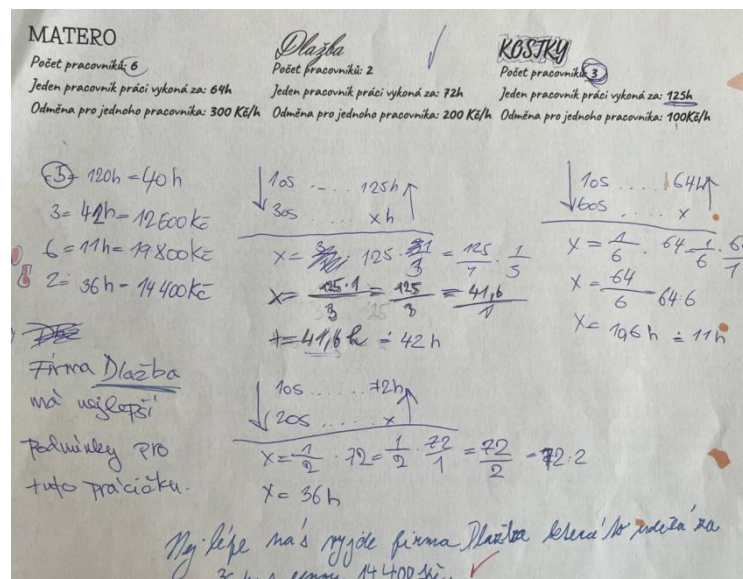 MATERO
Počet pracovníků: 6
Jeden pracovník práci vykoná za: 64h
Odměna pro jednoho pracovníka: 300 Kč/h
Dlažba
Počet pracovníků: 2
Jeden pracovník práci vykoná za: 72h
Odměna pro jednoho pracovníka: 200 Kč/h
KOSTKY
Počet pracovníků: 3
Jeden pracovník práci vykoná za: 125h
Odměna pro jednoho pracovníka: 100Kč/h
5 = 120h = 40h
3 = 42h = 12600 Kč
6 = 11h = 19800 Kč
2 = 36h - 14400 Kč
Firma Dlažba
má nejlepší
podmínky pro
tuto práci
1os .... 125h
3os .... x h
x = 125 · 1/3 = 125/1 · 1/3
x = 125·1/3 = 125/3 = 41,6/1
x = 41,6 h ≐ 42 h
1os ..... 72h
2os ..... x
x = 1/2 · 72 = 1/2 · 72/1 = 72/2 = 72:2
x = 36 h
1os ..... 64h
6os ..... x
x = 1/6 · 64 = 1/6 · 64/1
x = 64/6 = 64:6
x = 10,6 h ≐ 11h
Nejlépe nás vyjde firma Dlažba která to udělá za
36 h s cenou 14 400 Kč.